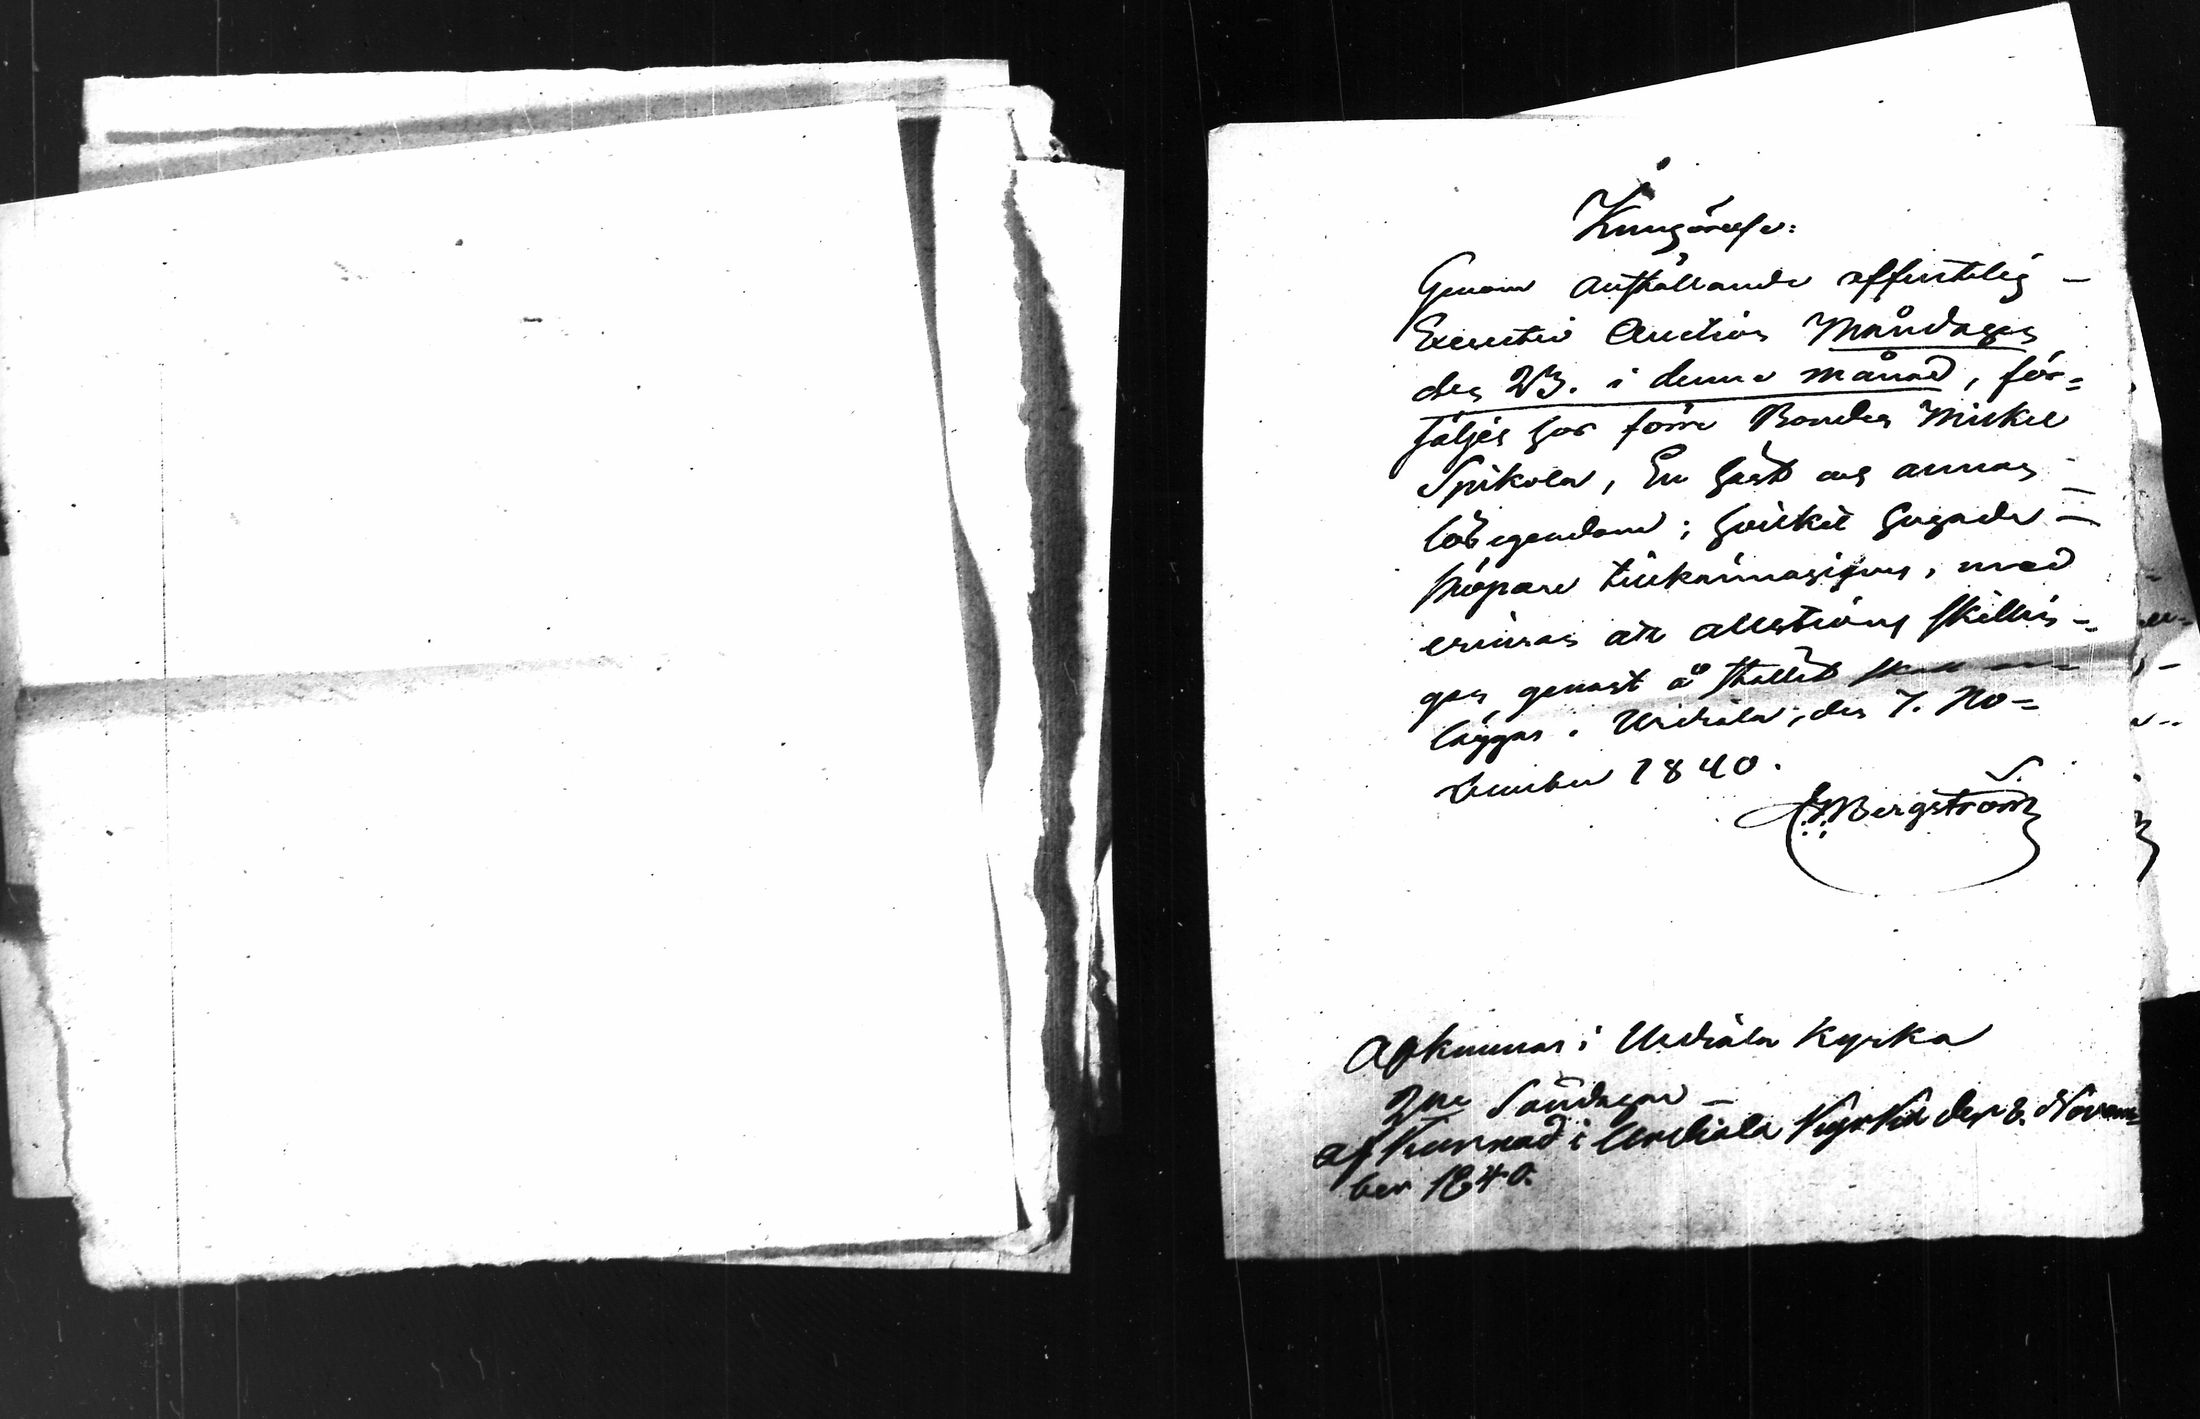 Kungörelse:
Genom anställande offentelig
Executiv Auction Måndagen
den 23. i denna månad, för=
säljes hos förre Bonden Mickel
Spikola, En häst och annan
lösegendom; hvilket hugade
köpare tillkännagifves, med
erinran att
gen, genast å stället skall
läggas. Urdiala, den 7. No=
vember 1840.
Bergström
Afkunnas i Urdiala Kyrka
2ne Söndagar
afkunnad i Urdiala Kyrka den 8. Novem=
ber 1840.